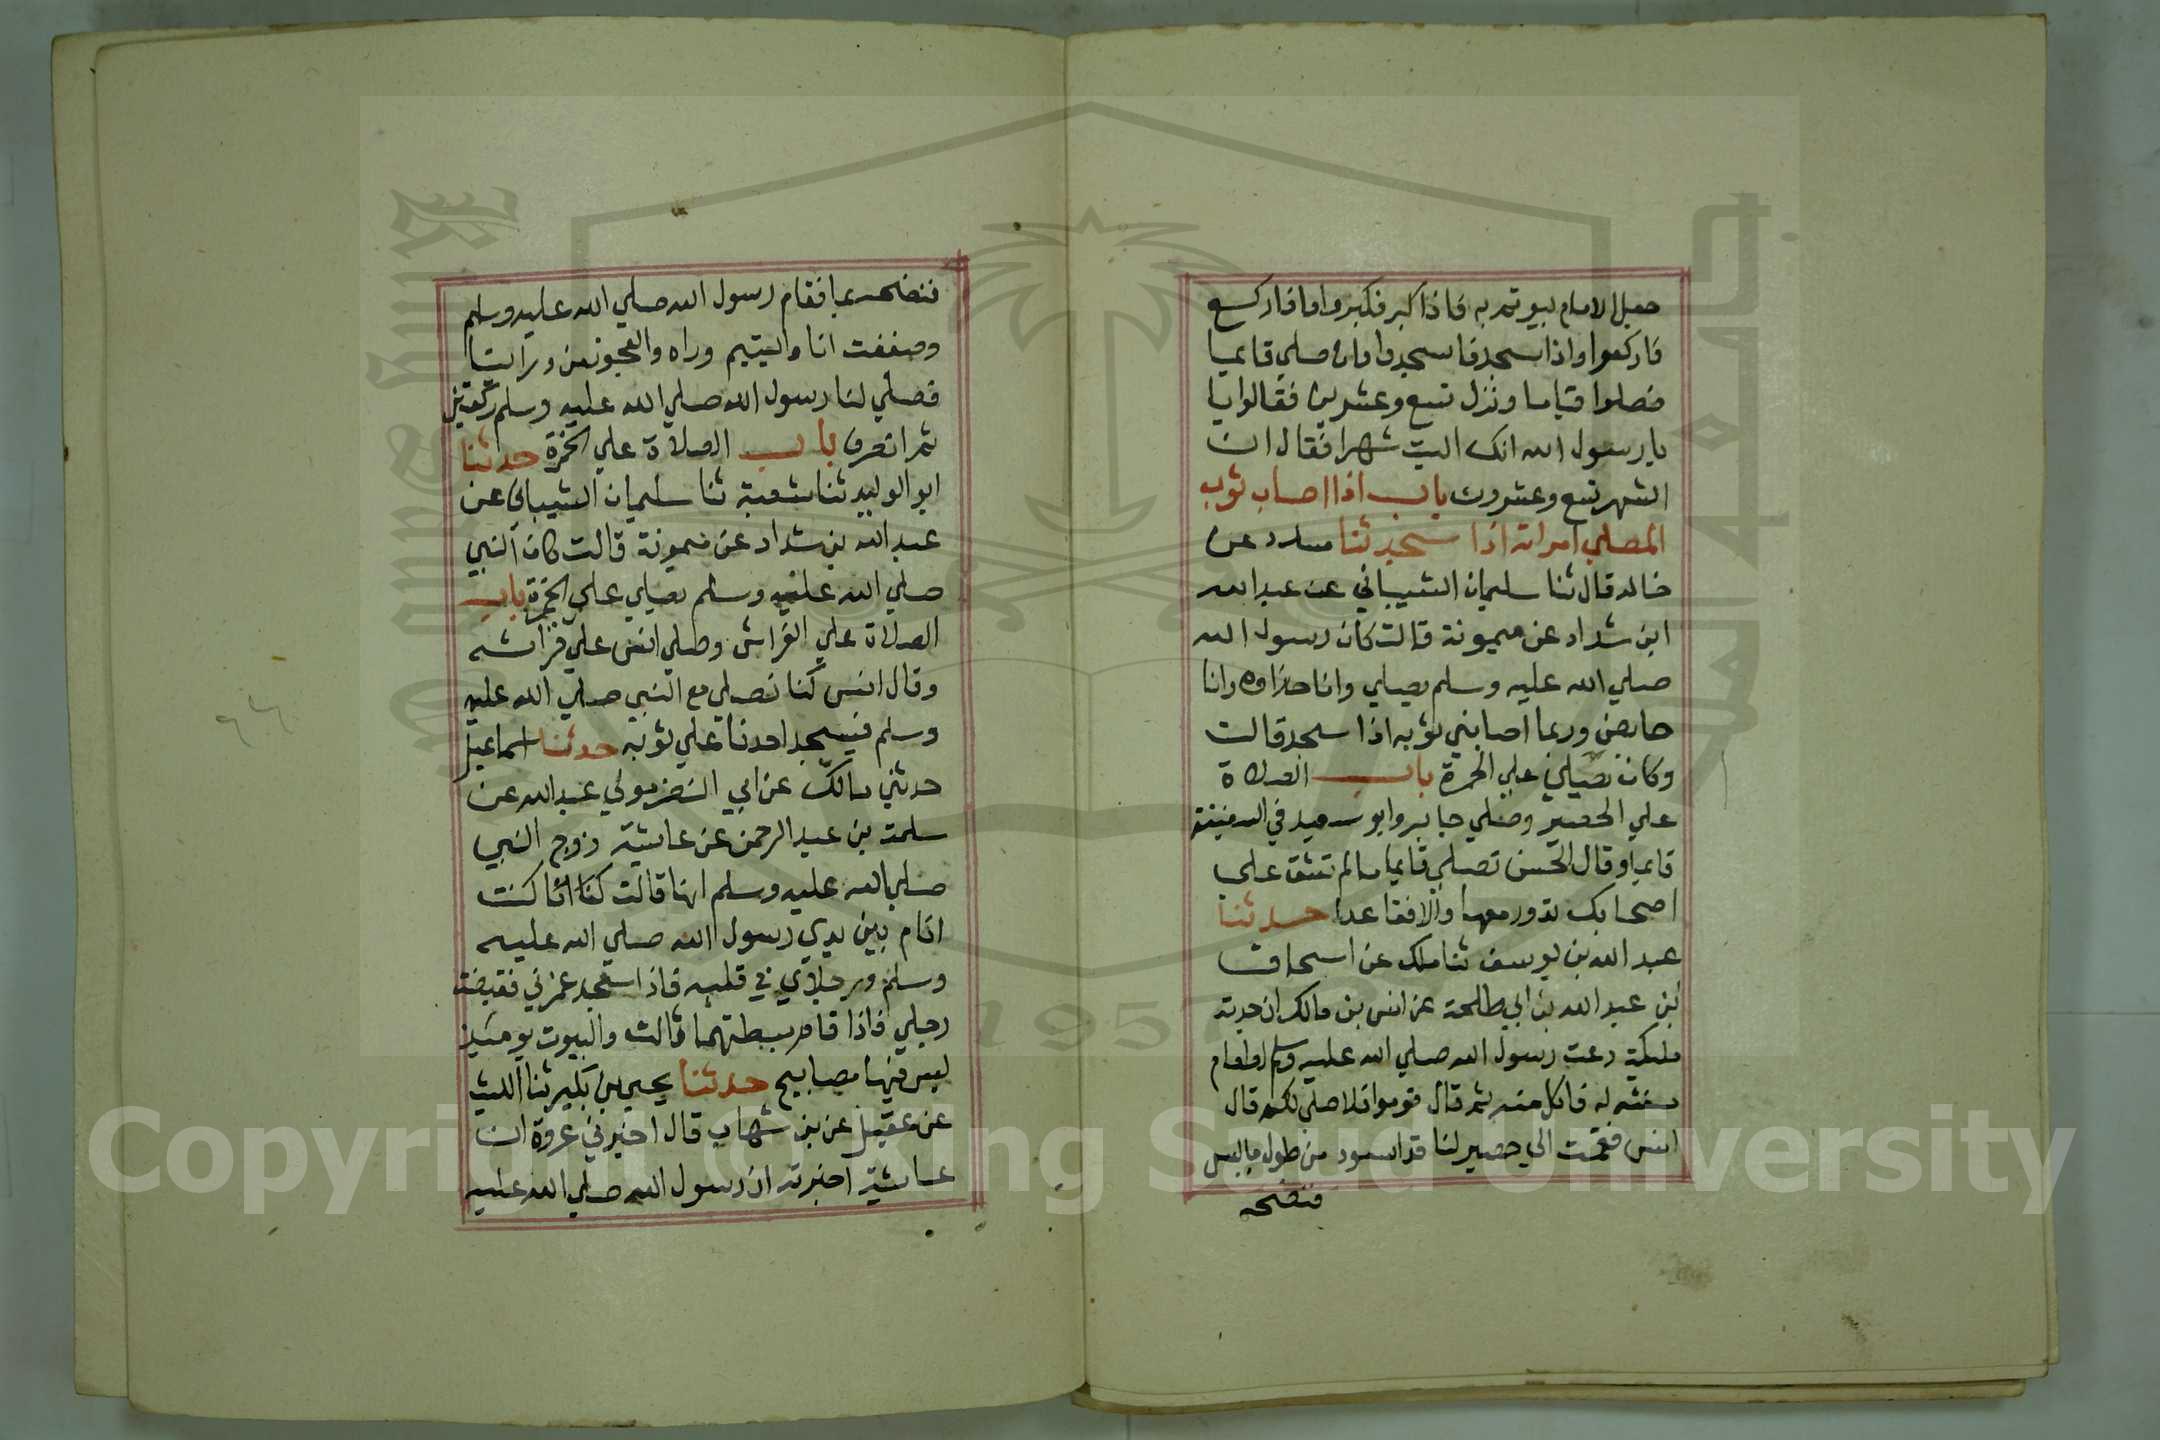 جعل الامام ليوتم به فاذا كبر فكبروا واذا ركع
فاركعوا واذا سجد فاسجدوا وان صلي قايما
فصلوا قياما ونزل تسع وعشرين فقالوا يا
يا رسول الله انك اليت شهرا فقال ان
الشهر تسع وعشرون باب اذا اصاب ثوب
المصلي امراته اذا سجد ثنا مسدد عن
خالد قال ثنا سليمان الشيباني عن عبد الله
ابن شداد عن ميمونة قالت كان رسول الله
صلي الله عليه وسلم يصلي وانا حذاوه وانا
حايض وربما اصابني ثوبه اذا سجد قالت
وكان يصلي علي الخمرة باب الصلاة
علي الحصير وصلي جابر وابو سعيد في السفينة
قايما وقال الحسن تصلي قايما ما لم تشق علي
اصحابك تدور معها والا فقاعدا حدثنا
عبد الله بن يوسف ثنا ملك عن اسحاق
بن عبد الله بن ابي طلحة عن انس بن مالك ان جدته
مليكة دعت رسول الله صلي الله عليه وسلم لطعام
صنعته له فاكل منه ثم قال قوموا فلاصلي لكم قال
انس فقمت الي حصير لنا قد اسود من طول ما لبس
فنضحه
فنضحه بما فقام رسول الله صلي الله عليه وسلم
وصففت انا واليتيم وراه والعجوز من ورائنا
فصلي لنا رسول الله صلي الله عليه وسلم ركعتين
ثم انصرف باب الصلاة علي الخمرة حدثنا
ابو الوليد ثنا شعبة ثنا سليمان الشيباني عن
عبد الله بن شداد عن ميمونة قالت كان النبي
صلي الله عليه وسلم يصلي علي الخمرة باب
الصلاة علي الفراش وصلي انس علي فراشه
وقال انس كنا نصلي مع النبي صلي الله عليه
وسلم فيسجد احدنا علي ثوبه حدثنا اسماعيل
حدثني مالك عن ابي النضر مولي عبد الله عن
سلمة بن عبد الرحمن عن عايشة زوج النبي
صلي الله عليه وسلم انها قالت كنا انا كنت
انام بين يدي رسول الله صلي الله عليه
وسلم ورجلاي في قبلته فاذا سجد غمزني فقبضت
رجلي فاذا قام بسطتهما قالت والبيوت يوميذ
ليس فيها مصابيح حدثنا يحيي بن بكير ثنا الليث
عن عقيل عن بن شهاب قال اخبرني عروة ان
عايشة اخبرته ان رسول الله صلي الله عليه
Copyright © King Saud University
1957